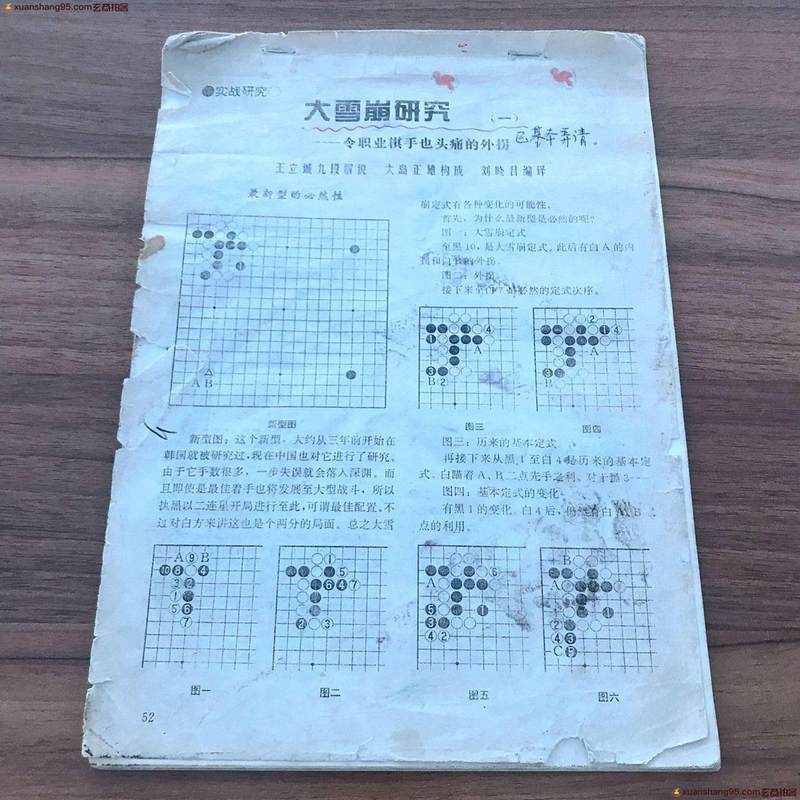 xuanshang95.com玄商拍客
实战研究
大雪崩研究（一）
——令职业棋手也头痛的外拐
已基本弄清。
王立诚九段解说 大岛正雄构成 刘晓君编译
最新型的必然性
A B
新型图
新型图：这个新型，大约从三年前开始在
韩国就被研究过，现在中国也对它进行了研究。
由于它手数很多，一步失误就会落入深渊。而
且即使是最佳着手也将发展至大型战斗，所以
执黑以二连星开局进行至此，可谓最佳配置。不
过对白方来讲这也是个两分的局面。总之大雪
崩定式有各种变化的可能性。
首先，为什么最新型是必然的呢？
图一：大雪崩定式
至黑10，是大雪崩定式。此后有白A的内
拐和白B的外拐。
图二：外拐
接下来至白7是必然的定式次序。
1 4
A
3
B 2
图三
2
1 4
A
3
B
图四
图三：历来的基本定式
再接下来从黑1至白4是历来的基本定
式。白瞄着A、B二点先手之利。对于黑3——
图四：基本定式的变化
有黑1的变化。白4后，仍然有白A、B二
点的利用。
A 9 B
10 8 4
3 2
1
5 6
7
图一
1
5
6 4 7
2 3
图二
6
A
5 1
3
4 2
图五
B
A
1
6
2
4 3
C 5
图六
52
xuanshang95.com玄商拍客